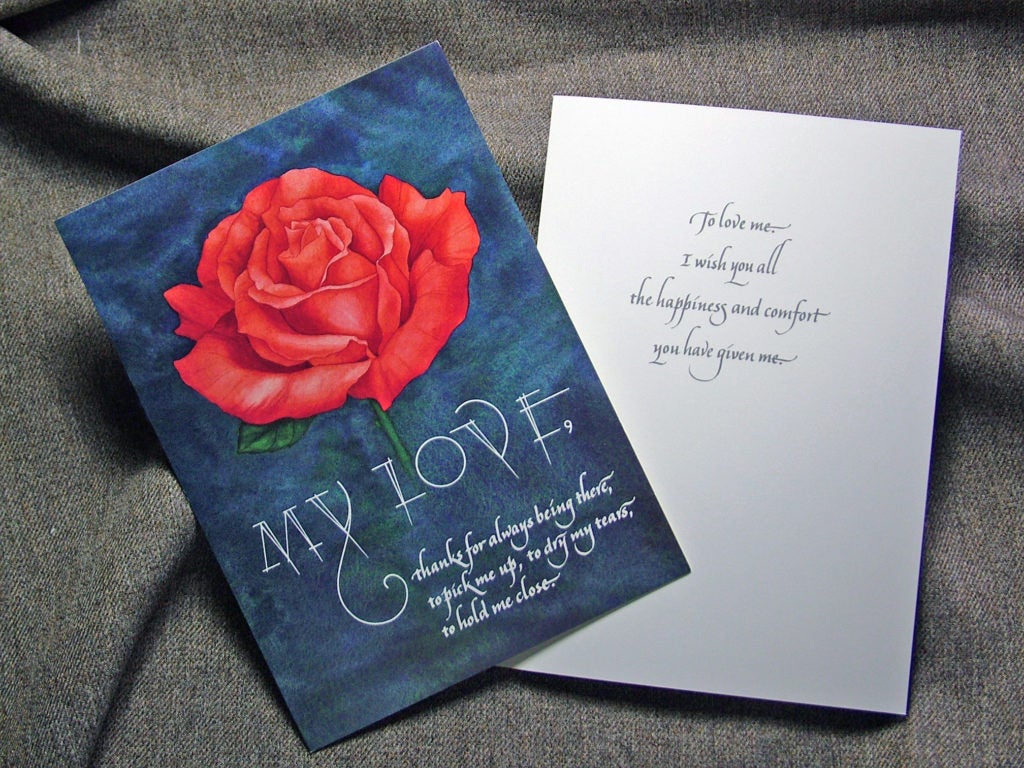 MY LOVE,
thanks for always being there,
to pick me up, to dry my tears,
to hold me close.
To love me.
I wish you all
the happiness and comfort
you have given me.